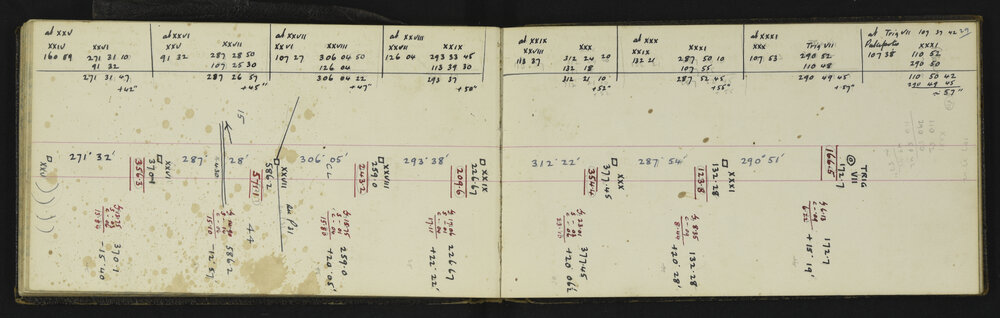 at XXV
XXIV XXVI
160 59 271 31 10
91 32
271 31 47
+42"
at XXVI
XXV XXVII
91 32 287 28 50
107 25 30
287 26 57
+45"
at XXVII
XXVI XXVIII
107 27 306 04 50
126 04
306 04 22
+47"
at XXVIII
XXVII XXIX
126 04 293 33 45
113 39 30
293 37
+50"
at XXIX
XXVIII XXX
113 37 312 24 20
132 18
312 21 10
+52"
at XXX
XXIX XXXI
132 21 287 50 10
107 55
287 52 45
+55"
at XXXI
XXX Trig VII
107 53 290 52
110 48
290 49 45
+57"
at Trig VII 107 37 42
XXXI
107 38 110 52
290 50
110 50 42
290 49 45
= 57"
XXV
271° 32'
356.3
370.1
XXVI
287 28'
2430
571.1
586.2
XXVII
306° 05'
C.L.
243.2
259.0
XXVIII
293° 38'
209.6
226.67
XXIX
312° 22'
354.4
377.45
XXX
287° 54'
123.8
132.28
XXXI
290° 51'
166.5
172.7
TRIG
VII
15
370.1
-15.40
44
586.2
-12.57
on P31
15.80
259.0
+20.05'
17.11
226.67
+22.22'
23.10
377.45
+20.062
8.44
132.28
+20.28'
6.22
172.7
+15.19'